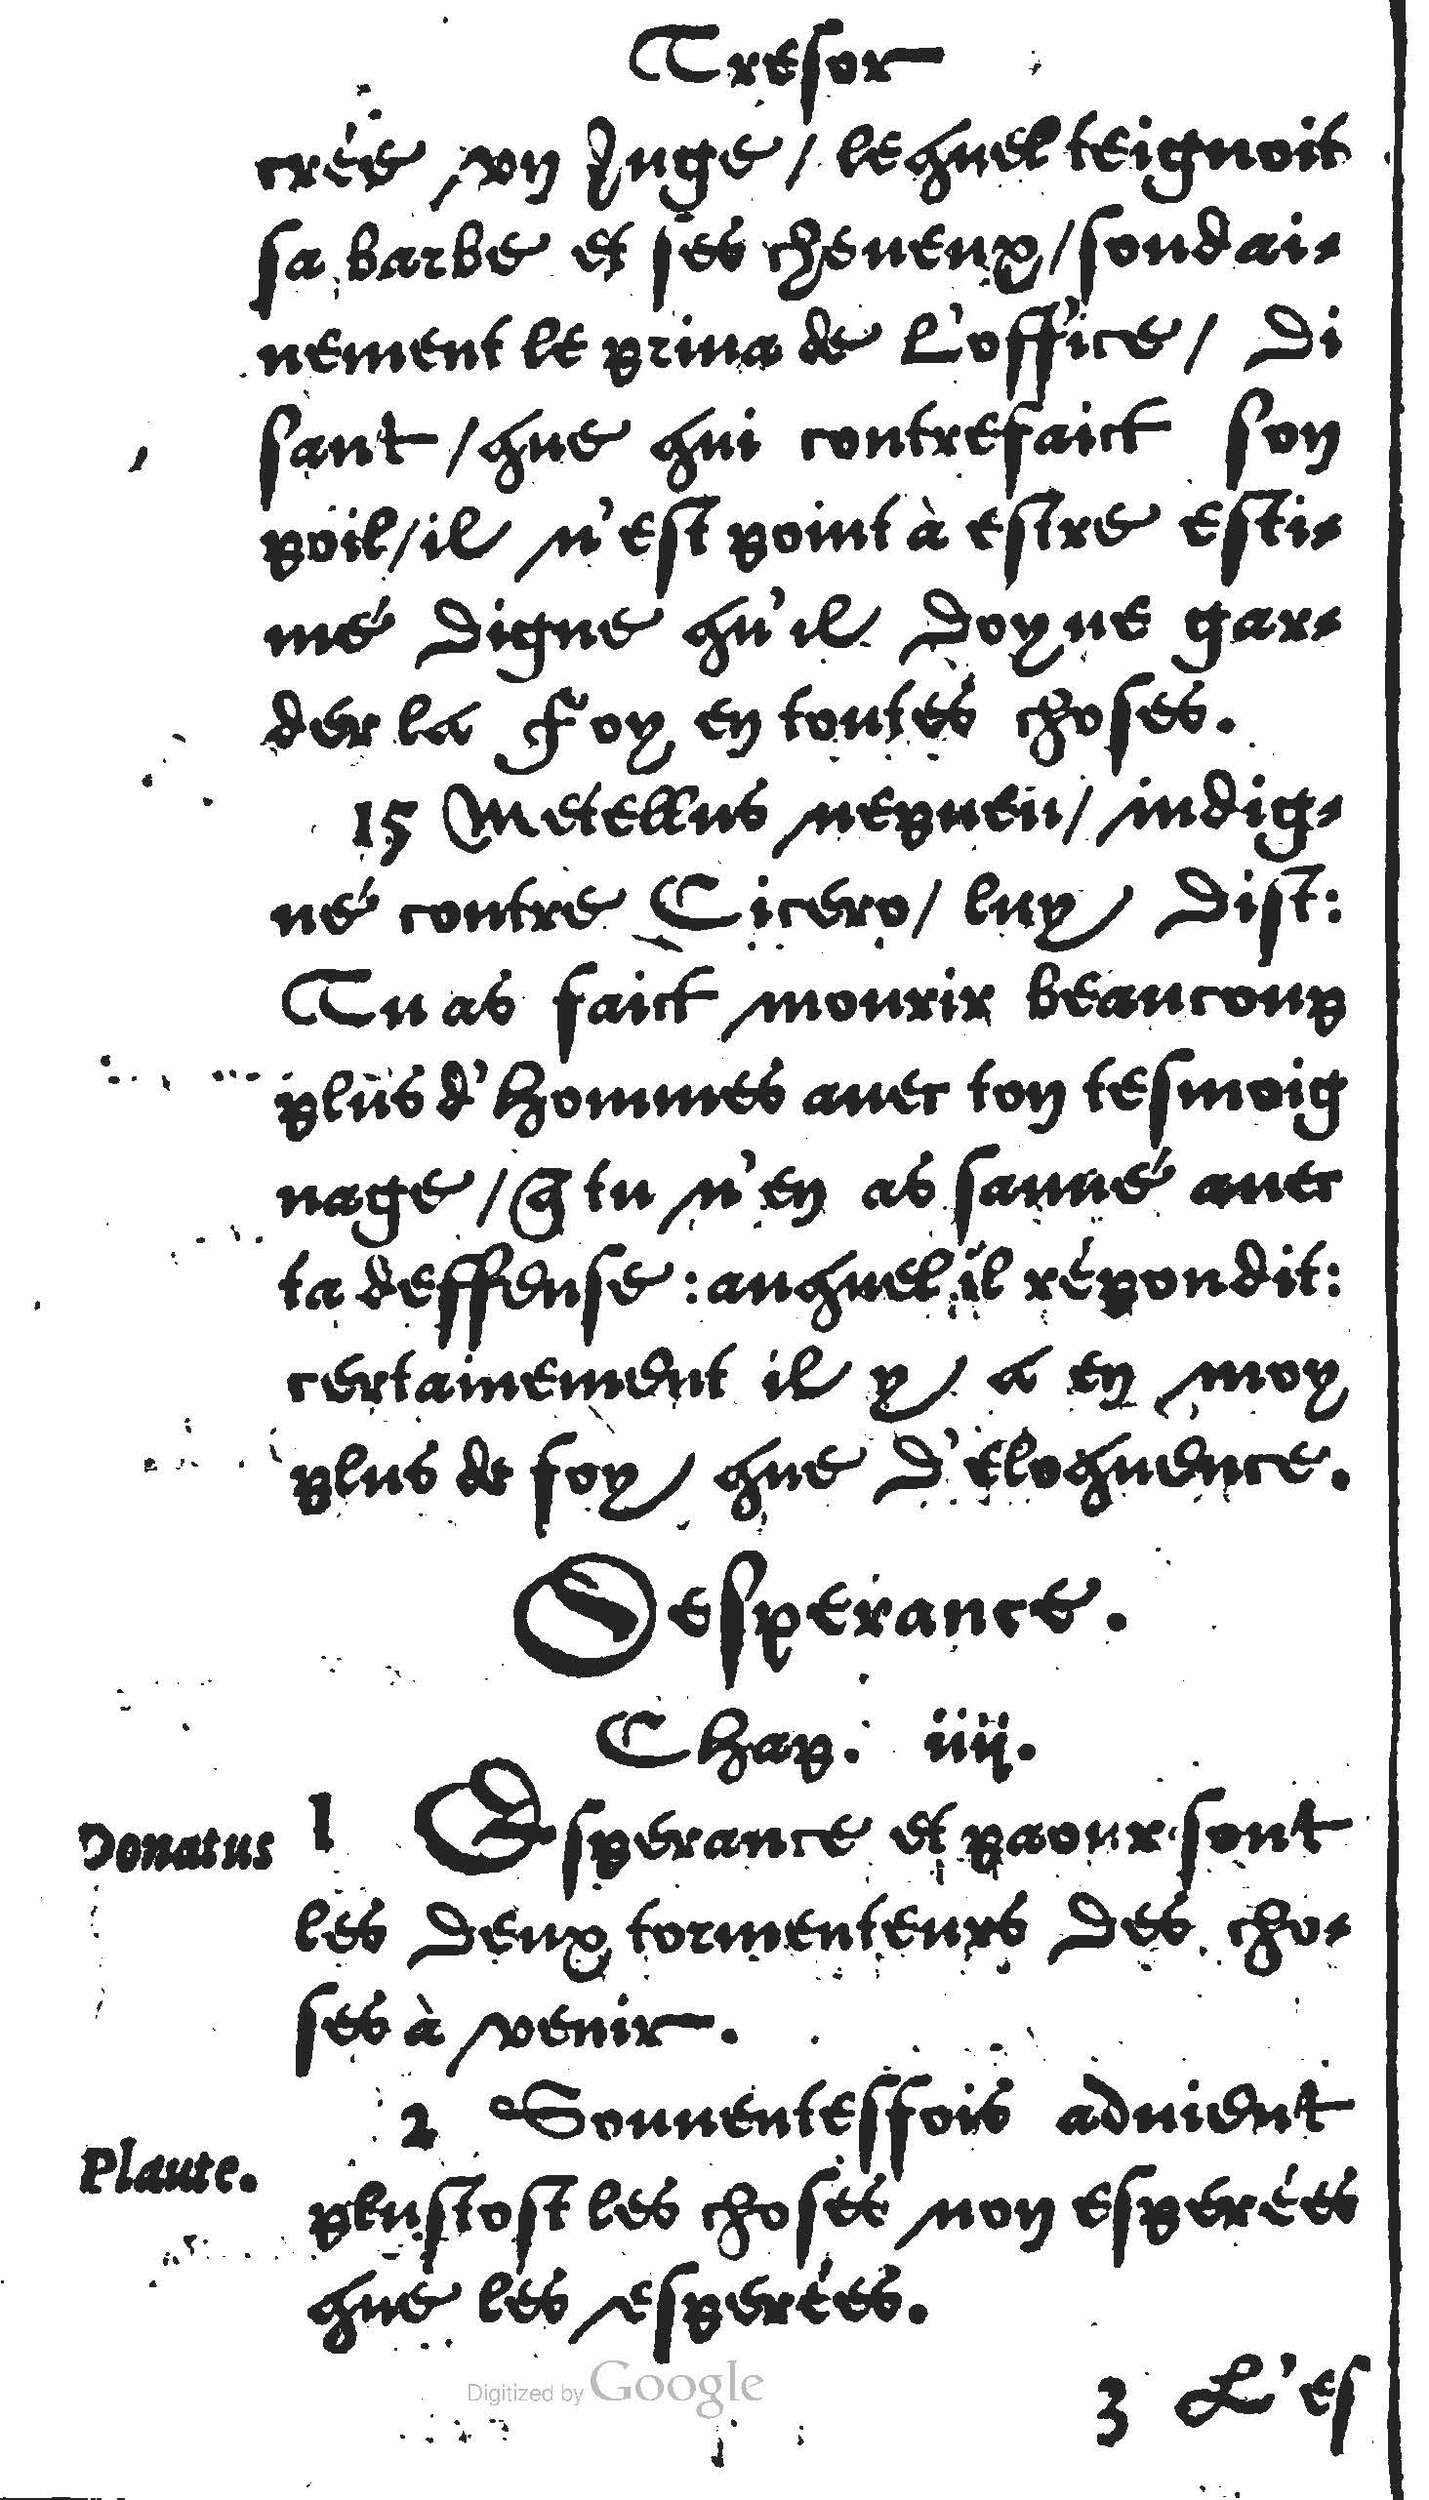 Tresor
créé vn Juge / lequel teignoit
sa barbe et ses cheueux / soudai-
nement le priua de L'office / di
sant / que qui contrefaict son
poil / il n'est point à estre esti-
mé digne qu'il doyue gar-
der la Foy en toutes choses.
15 Metellus nepueu / indig-
né contre Cicero / luy dist:
Tu as faict mourir beaucoup
plus d'hommes auec ton tesmoig
nage / q̃ tu n'en as sauué auec
ta deffense : auquel il répondit:
certainement il y a en moy
plus de foy que d'eloquence.
Desperance.
Chap. iiij.
Donatus
1 Esperance et paour sont
les deux tormenteurs des cho-
ses à venir.
2 Souuentesfois aduient
Plaute.
plustost les choses non esperées
que les esperées.
Digitized by Google
3 L'es